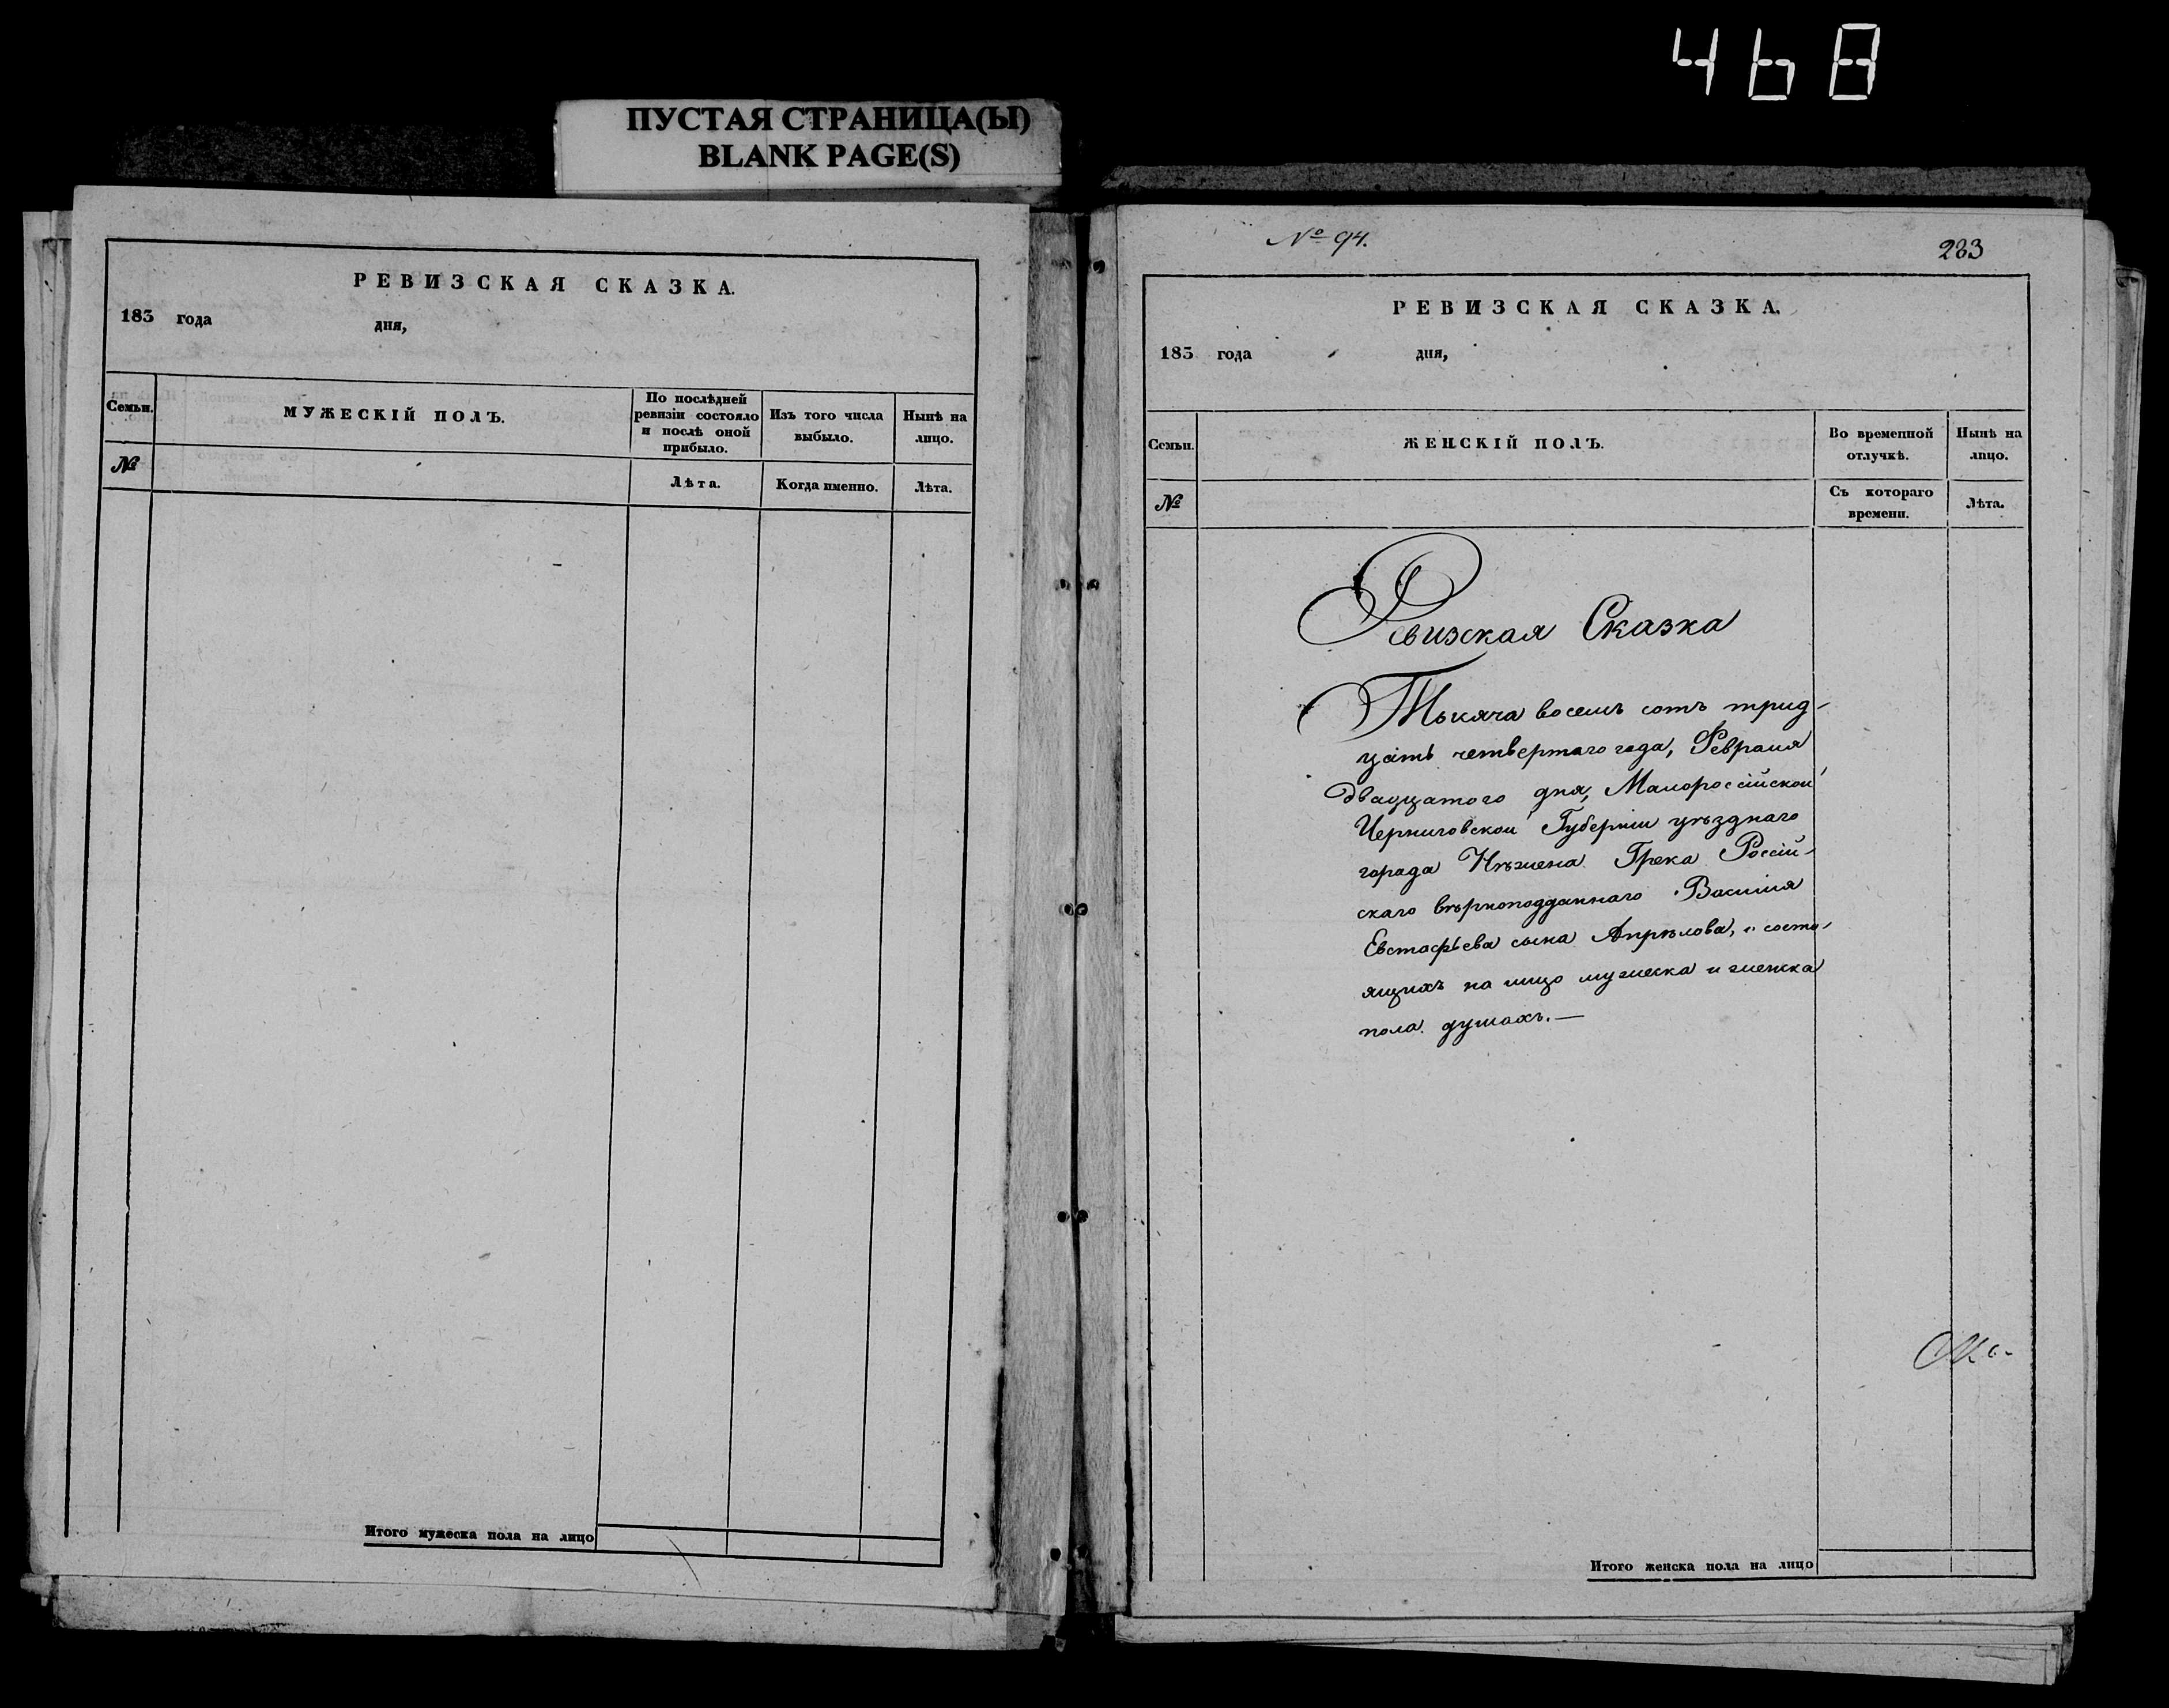 468
ПУСТАЯ СТРАНИЦА(Ы)
BLANK PAGE(S)
РЕВИЗСКАЯ СКАЗКА.
183 года дня,
Семьи.
МУЖЕСКІЙ ПОЛЪ.
По послѣдней ревизіи состояло и послѣ оной прибыло.
Изъ того числа выбыло.
Нынѣ на лицо.
№
Лѣта.
Когда именно.
Лѣта.
Итого мужеска пола на лицо
№ 94.
233
РЕВИЗСКАЯ СКАЗКА.
183 года дня,
Семьи.
ЖЕНСКІЙ ПОЛЪ.
Во временной отлучкѣ.
Нынѣ на лицо.
№
Съ котораго времени.
Лѣта.
Ревизская Сказка
Тысяча восемь сотъ трид-
цать четвертаго года, Февраля
двадцатого дня, Малороссійской
Черниговской Губерніи уѣзднаго
города Нѣжена Грека Россій-
скаго вѣрноподданнаго Василия
Евстафьева сына Апрѣлова, о состо-
ящихъ на лицо мужеска и женска
пола душахъ.—
Итого женска пола на лицо